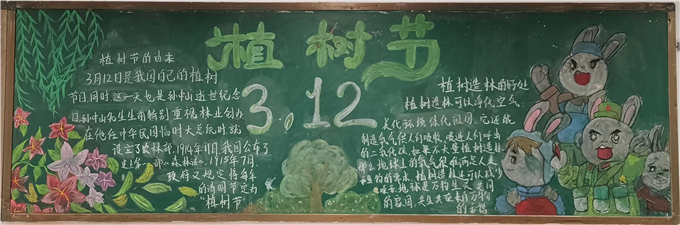 植树节
3.12
植树节的由来
3月12日是我国自己的植树
节日同时这一天也是孙中山逝世纪念
日孙中山先生生前特别重视林业创办
在他在中华民国临时大总统时就
设立了农林部,1914年11月,我国公布了
史上第一部《森林法》,1915年7月
政府又规定将每年
的清明节定为
"植树节"
植树造林的好处
植树造林可以净化空气
美化环境绿化祖国。它还能
制造氧气供人们吸收,吸进人们呼出
的二氧化碳,如果不大量植树造林
那么地球上的氧气很难满足人类
和植物的需求。植树造林也可以减少
地球是万物生灵
的家园